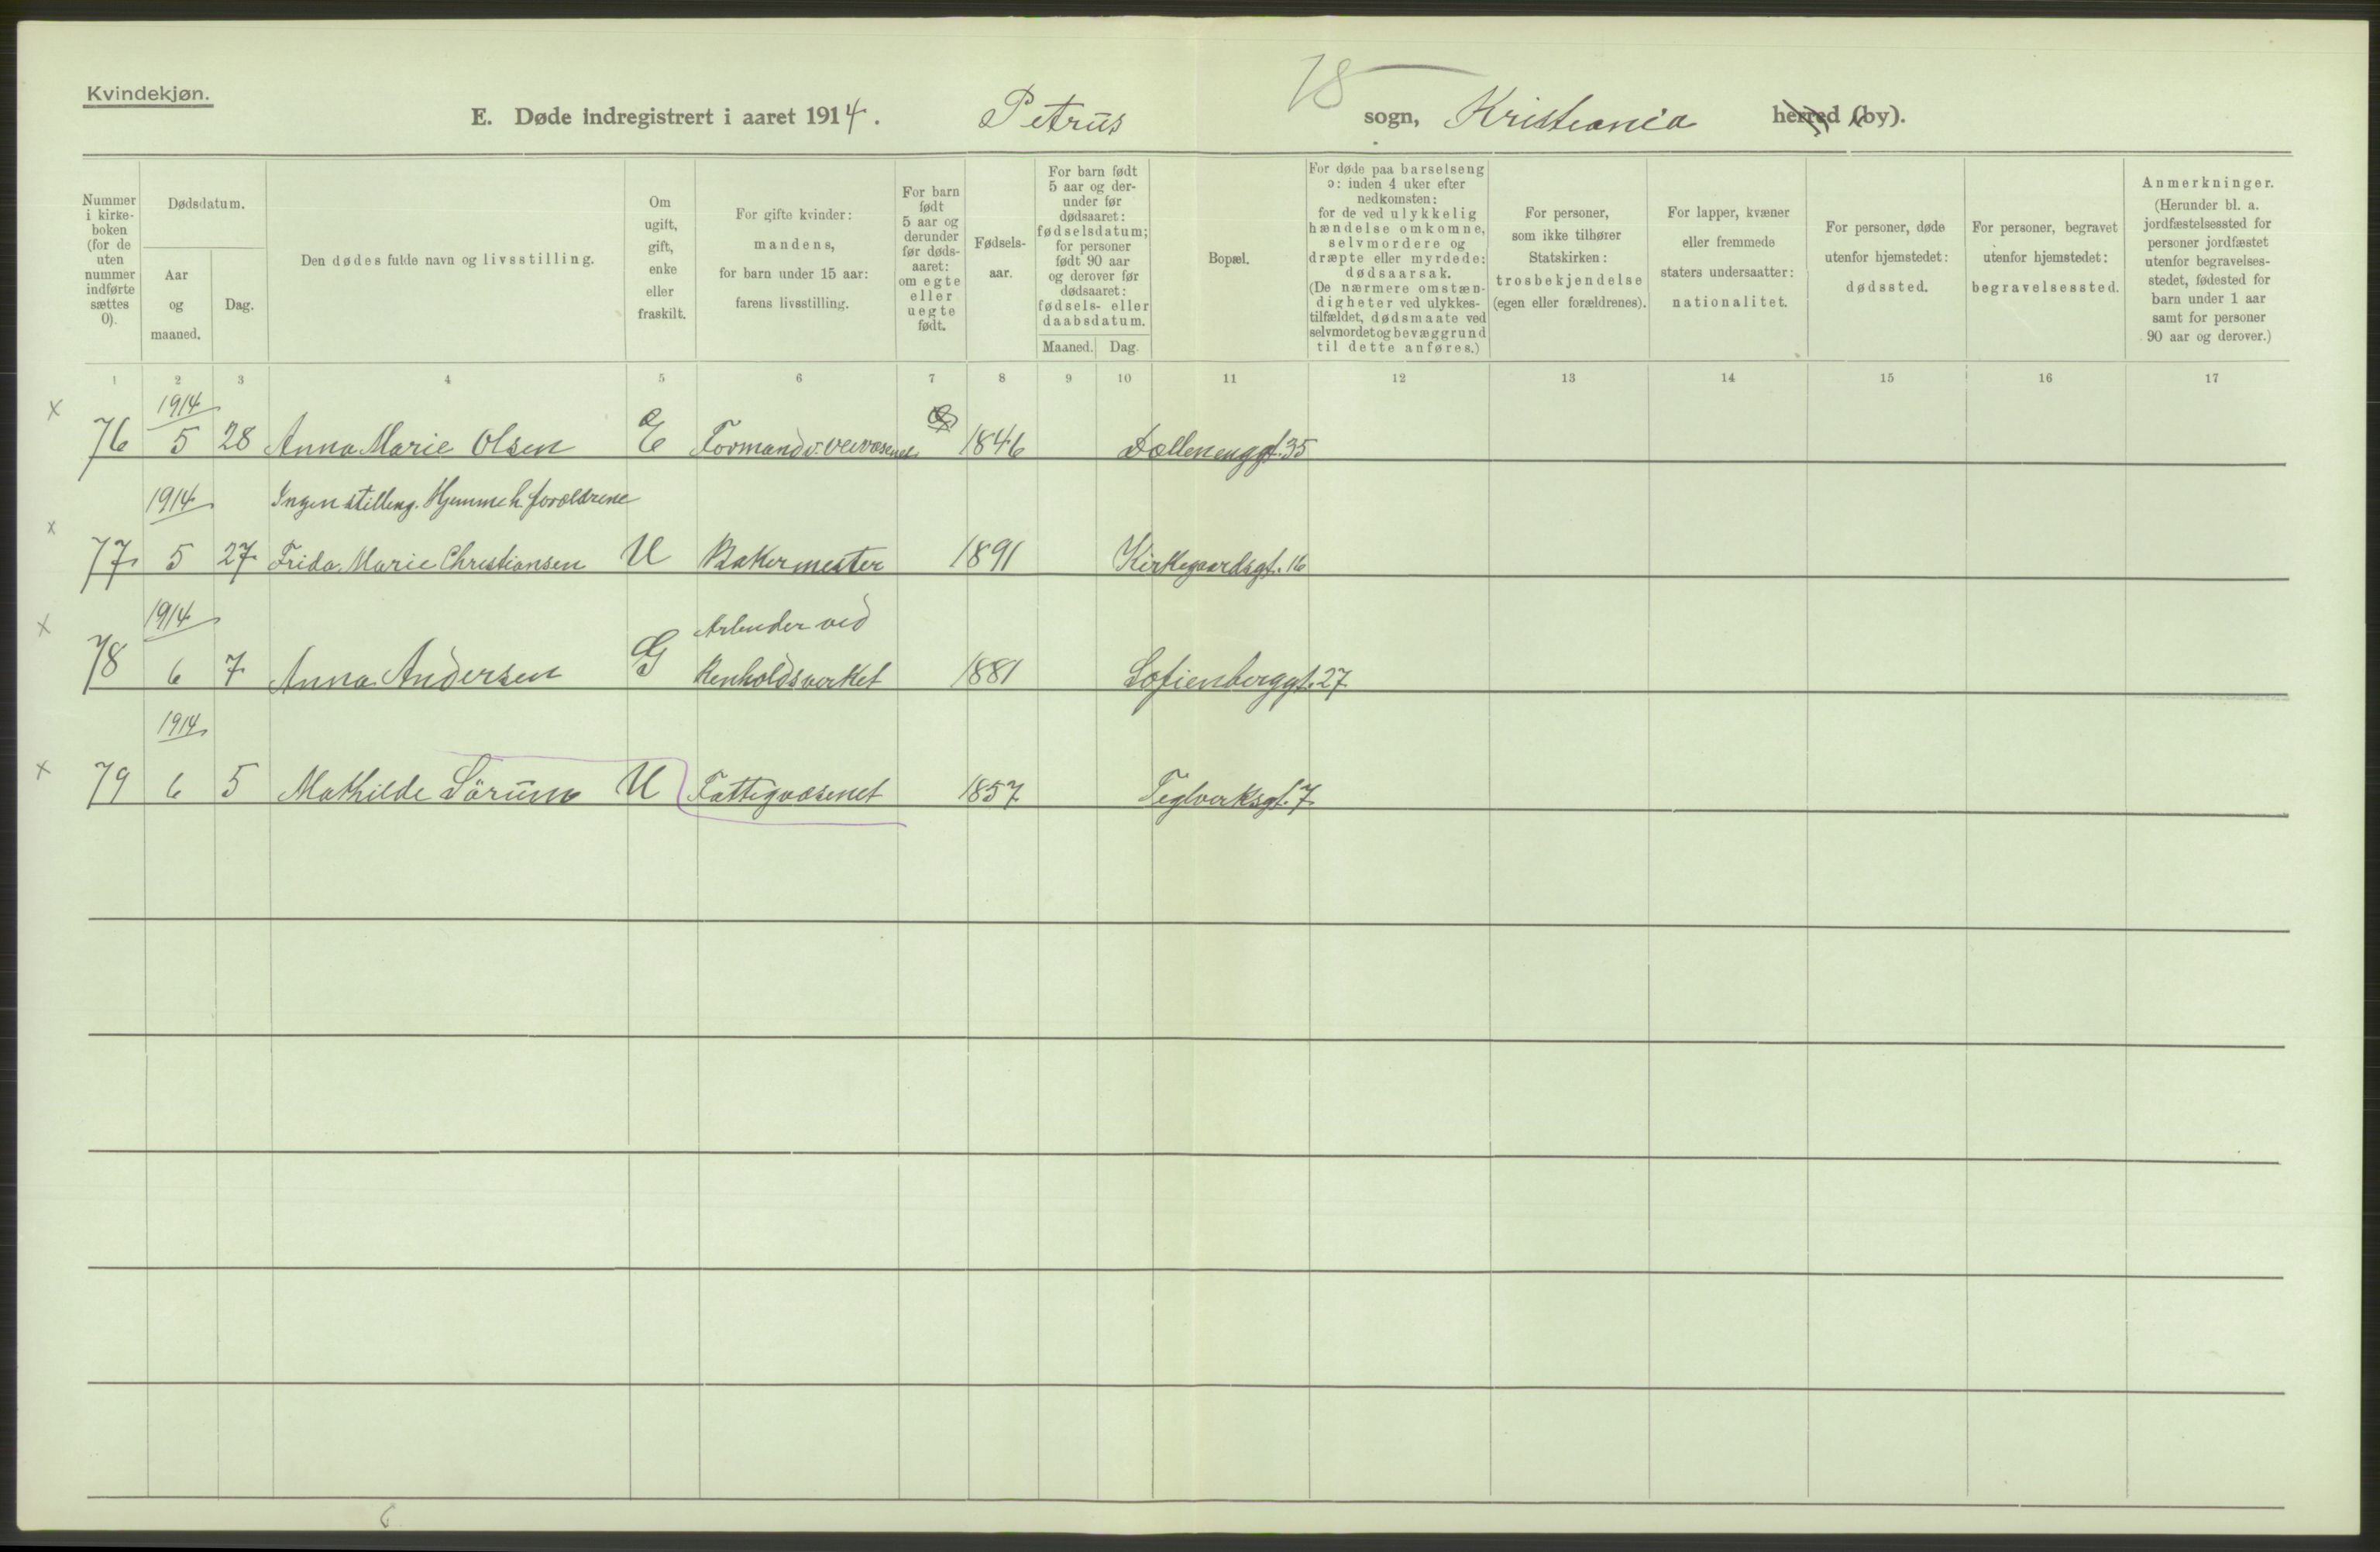 Kvindekjøn.
78
E. Døde indregistrert i aaret 1914. Petrus sogn, Kristiania herred (by).
Nummer i kirke-boken (for de uten nummer indførte sættes 0).
Dødsdatum.
Aar og maaned.
Dag.
Den dødes fulde navn og livsstilling.
Om ugift, gift, enke eller fraskilt.
For gifte kvinder: mandens, for barn under 15 aar: farens livsstilling.
For barn født 5 aar og derunder før døds-aaret: om egte eller uegte født.
Fødsels-aar.
For barn født 5 aar og der-under før dødsaaret: fødselsdatum; for personer født 90 aar og derover før dødsaaret: fødsels- eller daabsdatum.
Maaned. Dag.
Bopæl.
For døde paa barselseng ɔ: inden 4 uker efter nedkomsten: for de ved ulykkelig hændelse omkomne, selvmordere og dræpte eller myrdede: dødsaarsak. (De nærmere omstæn-digheter ved ulykkes-tilfældet, dødsmaate ved selvmordet og bevæggrund til dette anføres.)
For personer, som ikke tilhører Statskirken: trosbekjendelse (egen eller forældrenes).
For lapper, kvæner eller fremmede staters undersaatter: nationalitet.
For personer, døde utenfor hjemstedet: dødssted.
For personer, begravet utenfor hjemstedet: begravelsessted.
Anmerkninger. (Herunder bl. a. jordfæstelsessted for personer jordfæstet utenfor begravelses-stedet, fødested for barn under 1 aar samt for personer 90 aar og derover.)
1 2 3 4 5 6 7 8 9 10 11 12 13 14 15 16 17
x 1914
76 5 28 Anna Marie Olsen E Formand v. veivæsenet 1846 Dællenenggt. 35
1914 Ingen stilling. Hjemme h. forældrene
x 77 5 27 Frida Marie Christiansen U Bakermester 1891 Kirkegaardsgt. 16
x 1914 Arbeider ved
78 6 7 Anna Andersen G Renholdsverket 1881 Sofienberggt. 27
1914
x 79 6 5 Mathilde Sörum U Fattigvæsenet 1857 Teglverksgt. 7
6